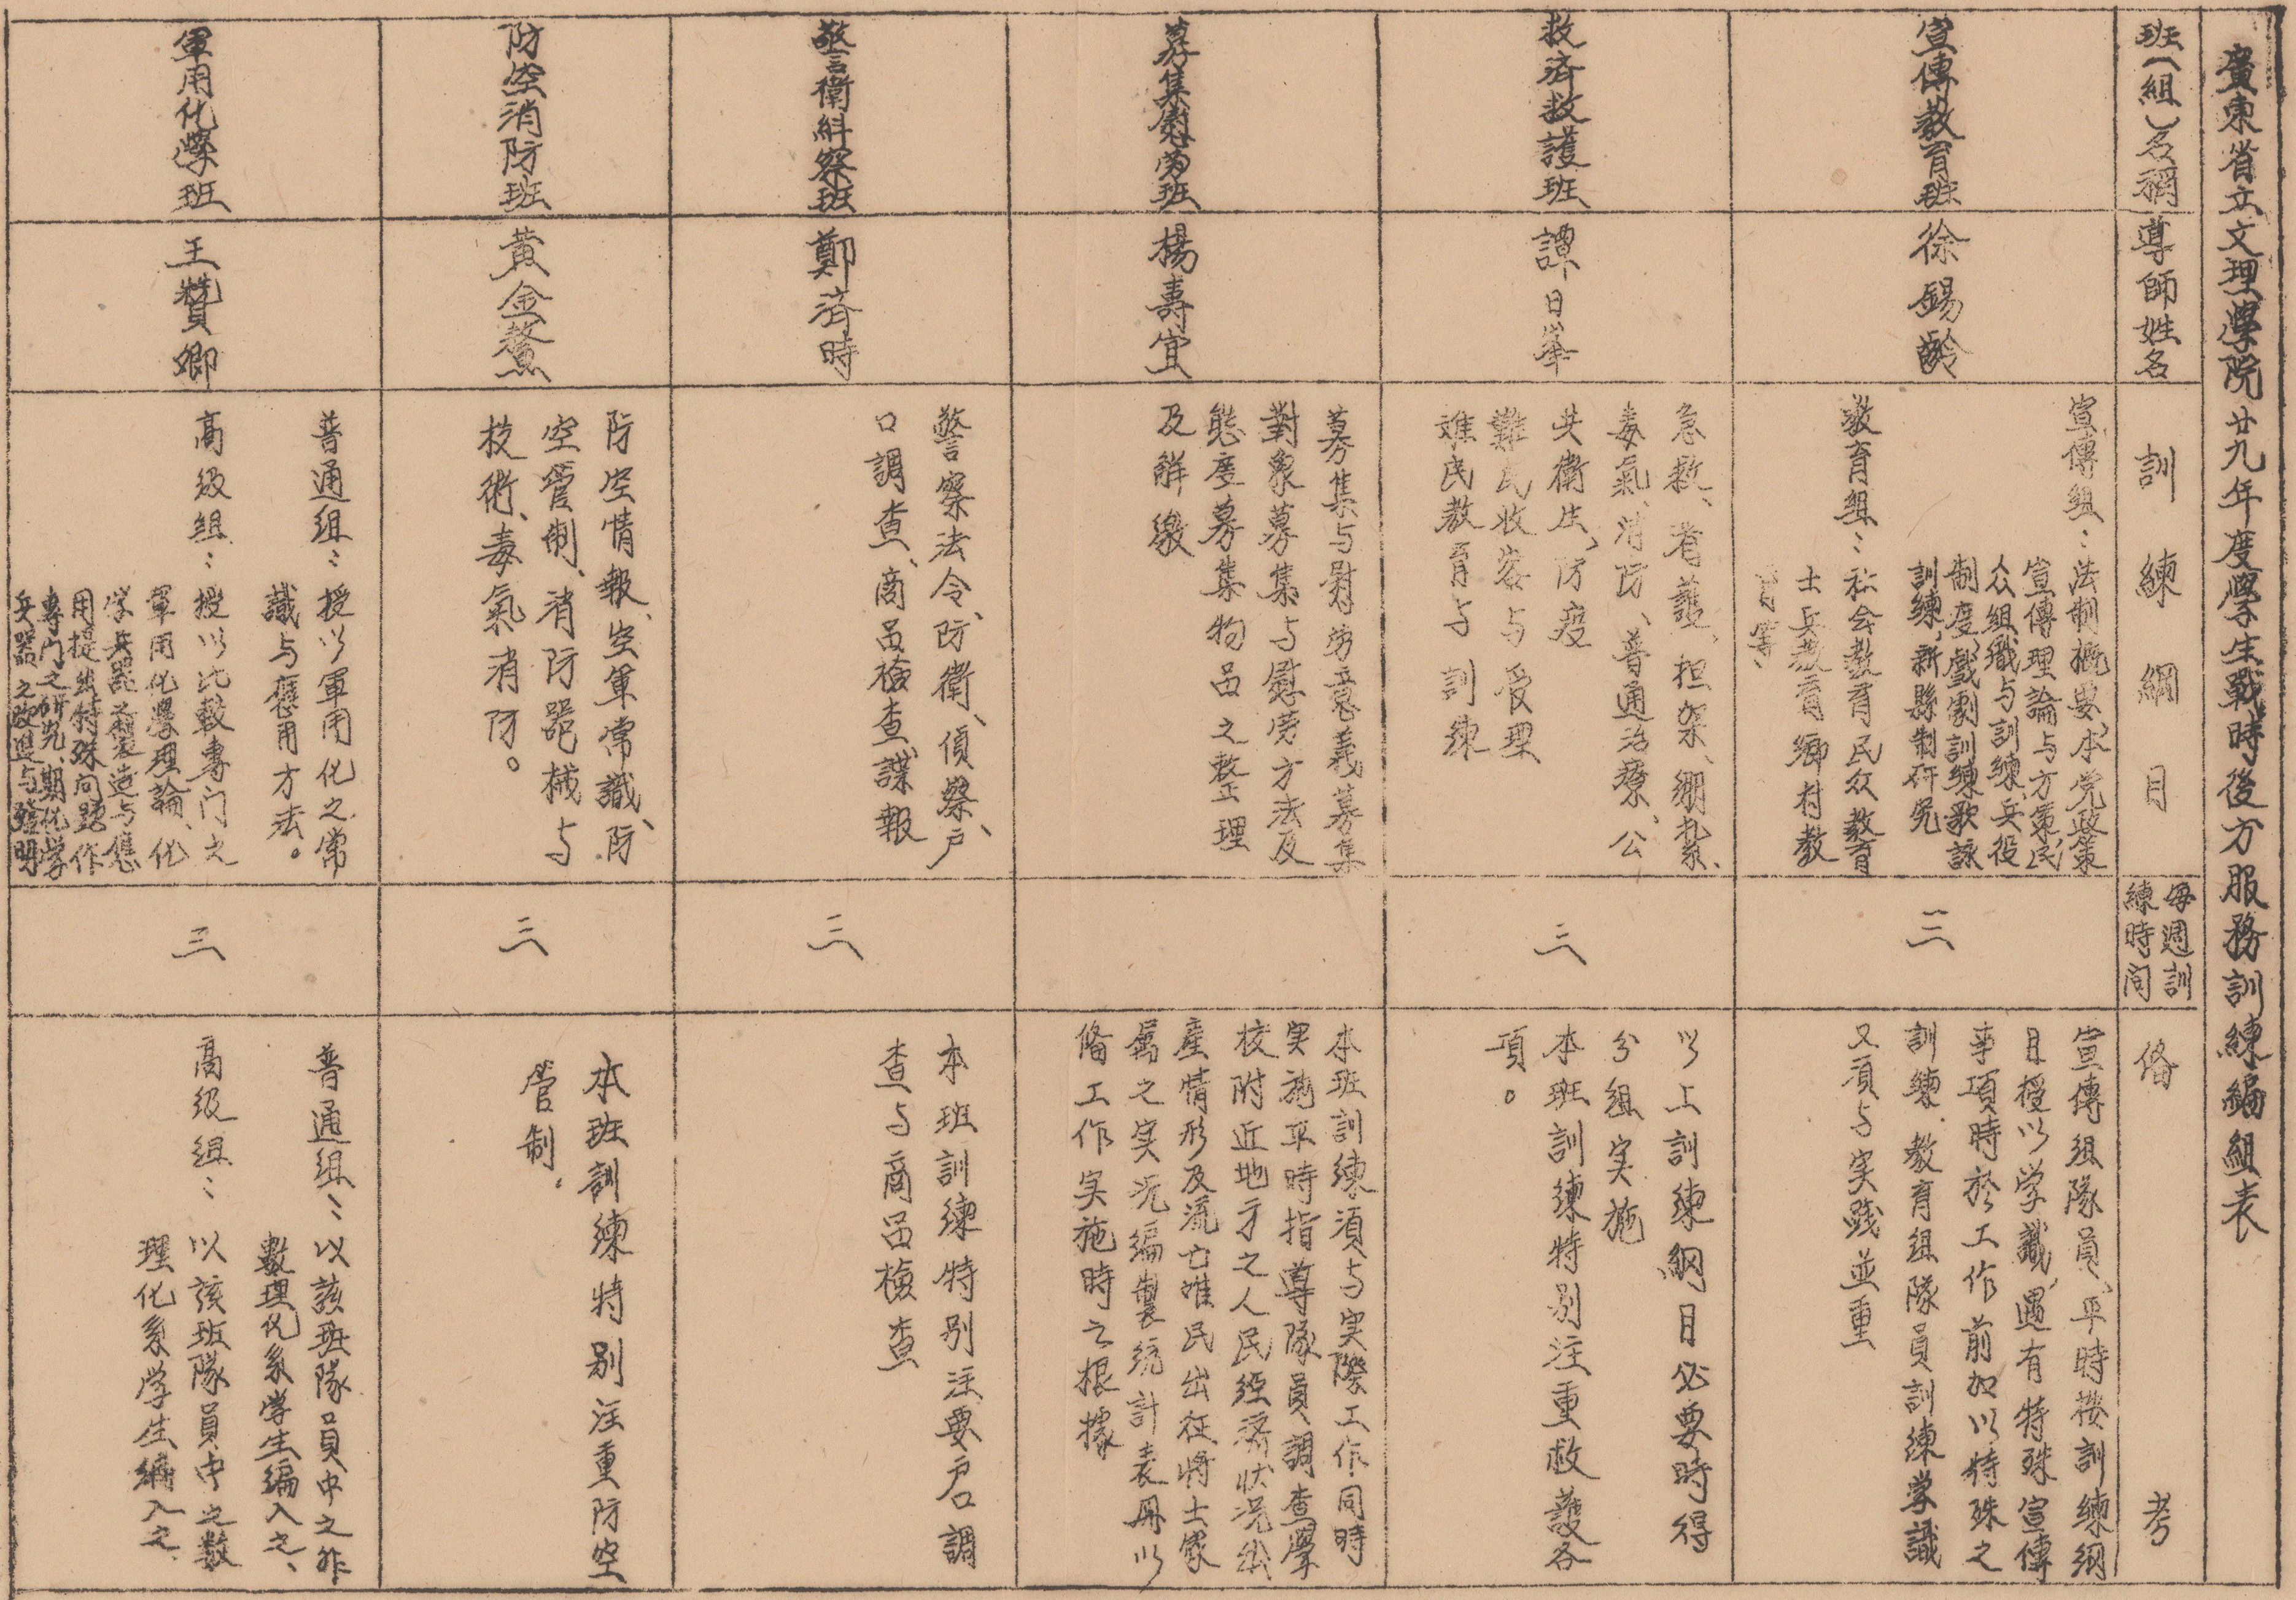 廣東省立文理學院廿九年度學生戰時後方服務訓練編組表
班(組)名稱
導師姓名
訓練綱目
每週訓
練時间
俻考
宣傳教育班
徐錫齡
宣傳組：法制概要、本党政策
宣傳理論与方策、民
众組織与訓練、兵役
制度、戲劇訓練歌詠
訓練、新縣制研究
教育組：社会教育民众教育
士兵教育鄉村教
育等、
三
宣傳組隊員、平時按訓練綱
目授以学識、遇有特殊宣傳
事項時於工作前加以特殊之
訓練．教育組隊員訓練学識
又須与実践並重
救濟救護班
譚日峯
急救、看護、担架、綳紮、
毒氣、消防、普通治療、公
共衛生、防疫
難民收容与管理
难民教育与訓練
三
以上訓練綱目必要時得
分組実施
本班訓練特别注重救護各
項。
募集慰劳班
楊壽宜
募集与慰劳意義募集
對象募集与慰劳方法及
態度募集物品之整理
及解繳
本班訓練須与実際工作同時
実施平時指導隊員調查學
校附近地方之人民經濟状况出
産情形及流亡难民出征將士家
属之実况編製統計表册以
俻工作実施時之根據
警衛糾察班
鄭濟時
警察法令、防衛、偵察、户
口調查、商品檢查諜報
三
本班訓練特别注要户口調
查与商品檢查
防空消防班
黃金鰲
防空情報、空軍常識、防
空管制、消防器械与
技術、毒氣消防。
三
本班訓練特别注重防空
管制．
軍用化學班
王贊卿
普通組：授以軍用化之常
識与應用方法。
高級組：授以比較專门之
軍用化學理論、化
学兵器之製造与應
用提出特殊问題作
專门之研究、期化学
兵器之改進与發明
三
普通組：以該班隊員中之非
數理化系学生編入之、
高級組：以該班隊員中之数
理化系学生編入之